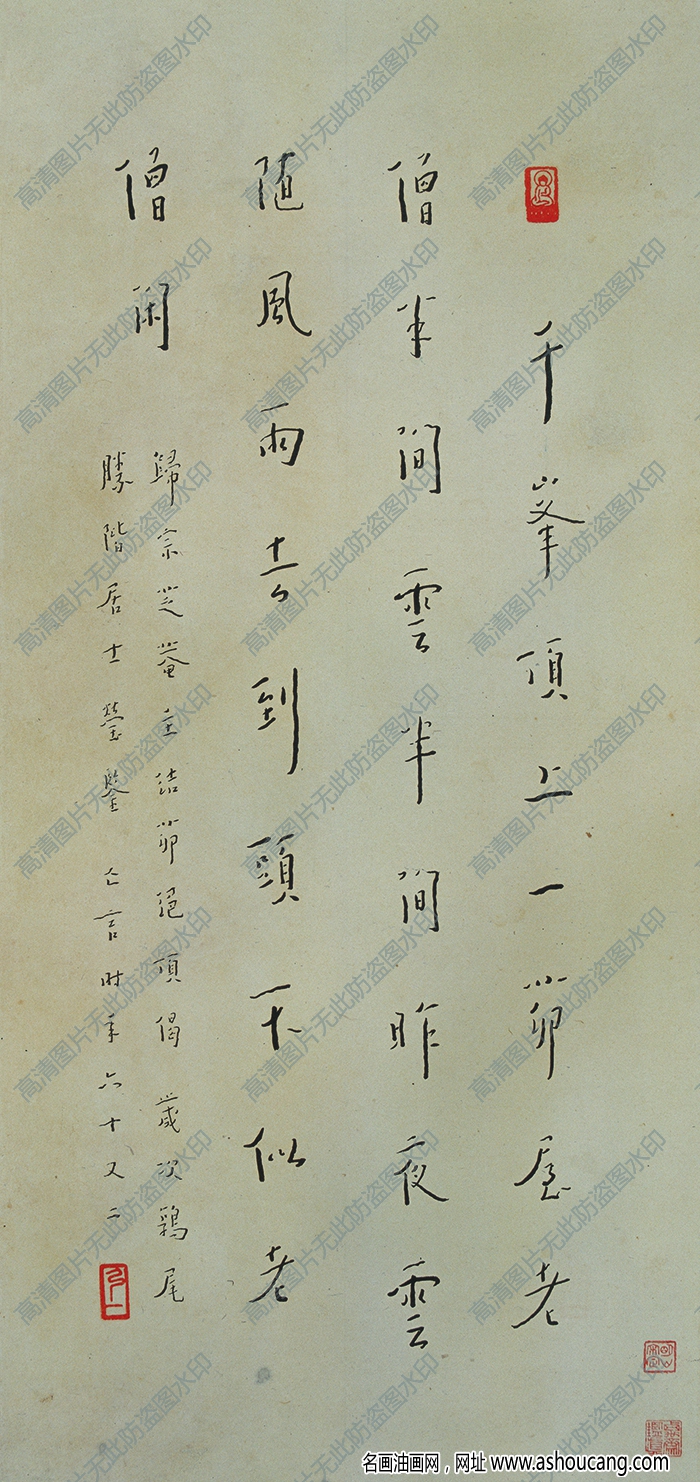 千峯頂上一茆屋老
僧半間雲半間昨夜雲
随風雨去到頭不似老
僧閑
歸宗芝菴主結茆絕頂偈 歲次鶉尾
勝階居士瑩鑒 亡言時年六十又二
高清图片无此防盗图水印
名画油画网，网址 www.ashoucang.com